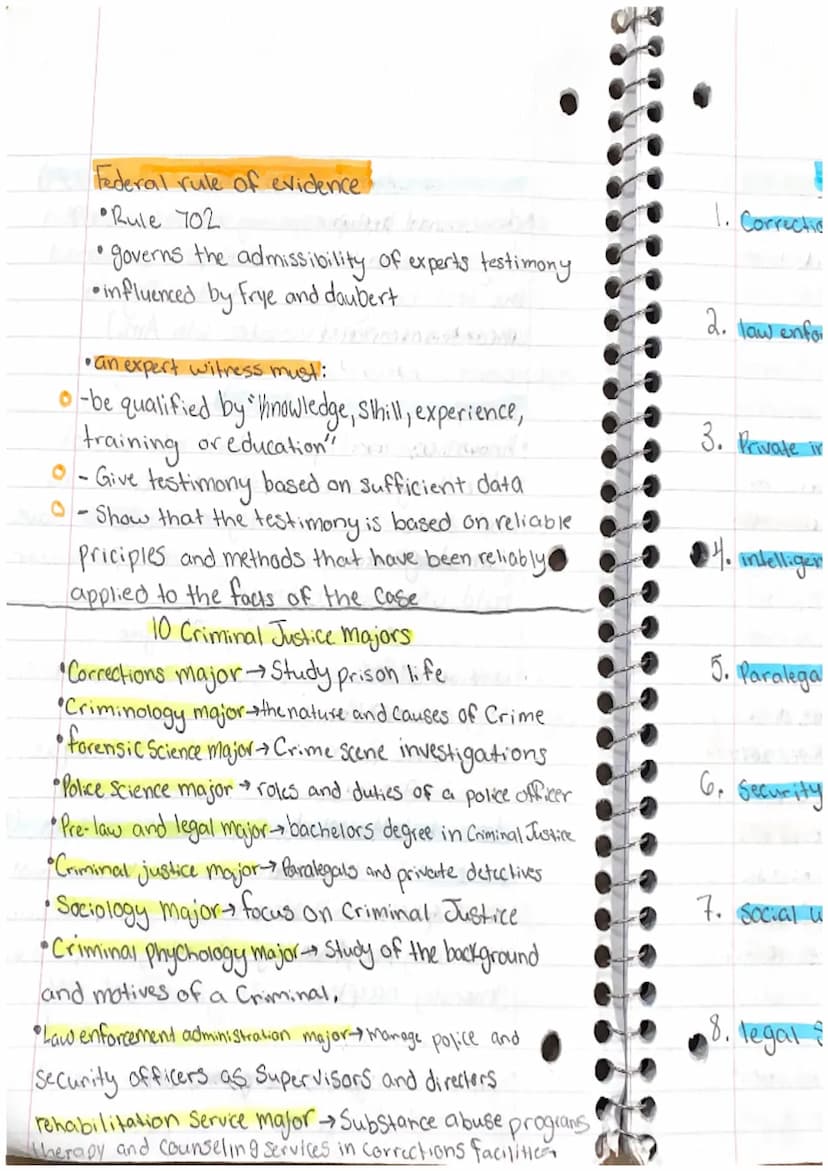 Federal rule of evidence
• Rule 702
• governs the admissibility of experts testimony
• influenced by Frye and daubert
• an expert witness must:
- be qualified by "knowledge, skill, experience,
training or education"
- Give testimony based on sufficient data
- Show that the testimony is based on reliable
priciples and methods that have been reliably
applied to the facts of the case
10 Criminal Justice Majors
• Corrections major → Study prison life
• Criminology major → the nature and causes of Crime
• forensic Science major → Crime scene investigations
• Police Science major → roles and duties of a police officer
• Pre-law and legal major → bachelors degree in Criminal Justice
• Criminal justice major → Paralegals and private detectives
• Sociology Major → focus on Criminal Justice
• Criminal phychology major → Study of the background
and motives of a Criminal.
• Law enforcement administration major → manage police and
security officers as Supervisors and directers
rehabilitation Service major → Substance abuse programs
therapy and counseling services in corrections facilities
1. Correctio
2. law enfo
3. Private in
4. intelligen
5. Paralega
6. Security
7. Social w
8. legal S